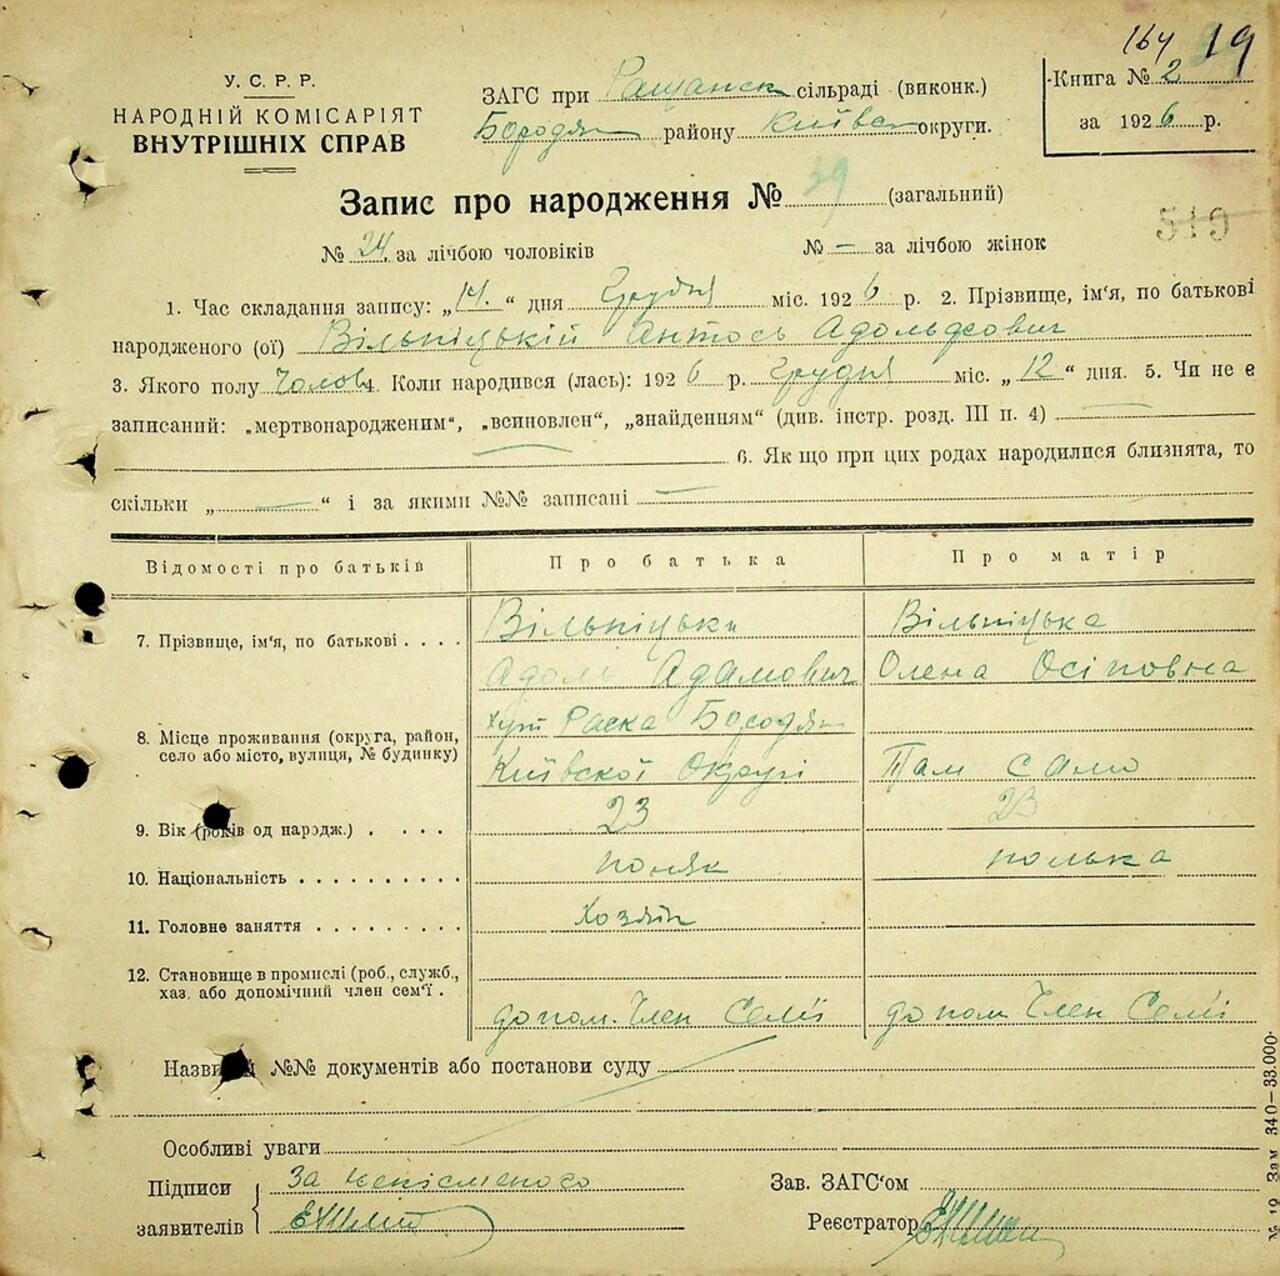 164 19
У. С. Р. Р.
НАРОДНІЙ КОМІСАРІЯТ
ВНУТРІШНІХ СПРАВ
ЗАГС при Ращанск сільраді (виконк.)
Бородян району Київс округи.
Книга № 2
за 1926 р.
Запис про народження № 39 (загальний)
519
№ 24. за лічбою чоловіків № — за лічбою жінок
1. Час складання запису: „14.“ дня Грудня міс. 1926 р. 2. Прізвище, ім'я, по батькові
народженого (ої) Вільніцький Антось Адольфович
3. Якого полу Чолов 4. Коли народився (лась): 1926 р. Грудня міс. „12“ дня. 5. Чи не є
записаний: „мертвонародженим“, „всиновлен“, „знайденням“ (див. інстр. розд. III п. 4) —
— 6. Як що при цих родах народилися близнята, то
скільки „ — “ і за якими №№ записані —
Відомості про батьків Про батька Про матір
7. Прізвище, ім'я, по батькові . . . . Вільніцьки Вільніцька
Адоль Адамович Олена Осіповна
8. Місце проживання (округа, район, село або місто, вулиця, № будинку) хут Раска Бородян
Київскої Округі Там само
9. Вік (років од народж.) . . . . 23 23
10. Національність . . . . . . . . . . поляк полька
11. Головне заняття . . . . . . . . . Хозяін
12. Становище в промислі (роб., служб.,
хаз. або допомічний член сем'ї . допом. Член Семїі допом Член Семї
Назви й №№ документів або постанови суду
Особливі уваги
Підписи заявителів За непісменого
Зав. ЗАГС'ом
Реєстратор
№ 19 Зам 340—33.000.